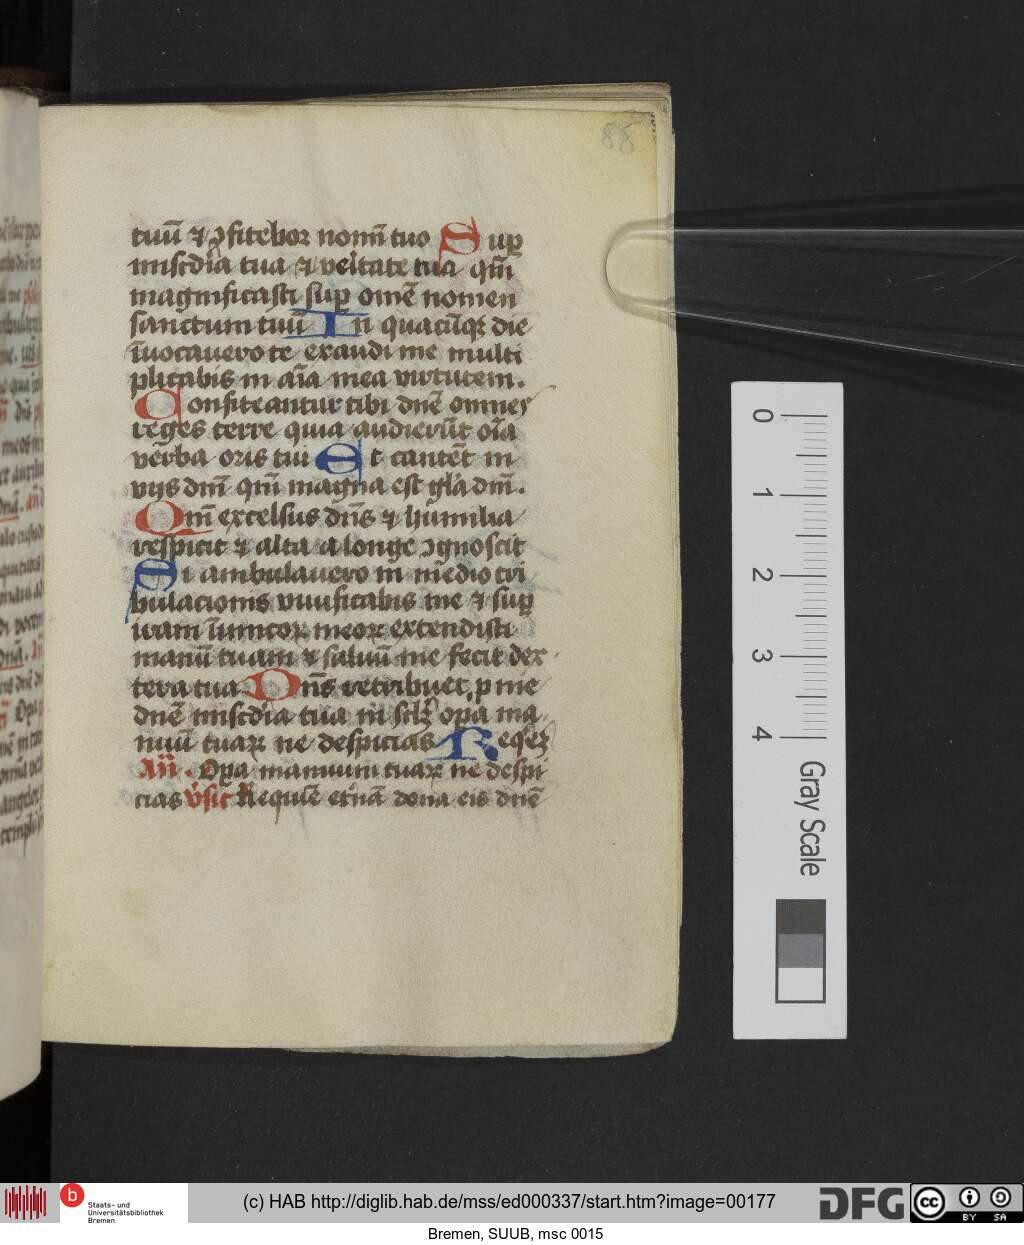 88
tuū ⁊ ↄfitebor nomī tuo Sup
miſcdia tua ⁊ veritate tua qm̄
magnificaſti ſup omē nomen
ſanctum tuū In quacūqꝫ die
īuocauero te exaudi me multi
plicabis in aīa mea virtutem.
Confiteantur tibi dnē omnes
reges terre quia audierūt oīa
verba oris tui Et cantēt in
vijs dnī qm̄ magna eſt glā dnī.
Qm̄ excelſus dn̄s ⁊ humilia
reſpicit ⁊ alta a longe ↄgnoſcit
Si ambulauero in medio tri
bulacionis viuificabis me ⁊ ſup
iram īimicoꝝ meoꝝ extendiſti
manū tuam ⁊ ſaluū me fecit dex
tera tua Dn̄s retribuet p me
dnē miſcdia tua in ſclꝫ opa ma
nuū tuaꝝ ne deſpicias Reqēꝫ
An̄. Opa manuum tuaꝝ ne deſpi
cias vſic̄ Requiē etnā dona eis dnē
0
1
2
3
4
Gray Scale
b Staats- und
Universitätsbibliothek
Bremen
(c) HAB http://diglib.hab.de/mss/ed000337/start.htm?image=00177
DFG
cc BY SA
Bremen, SUUB, msc 0015